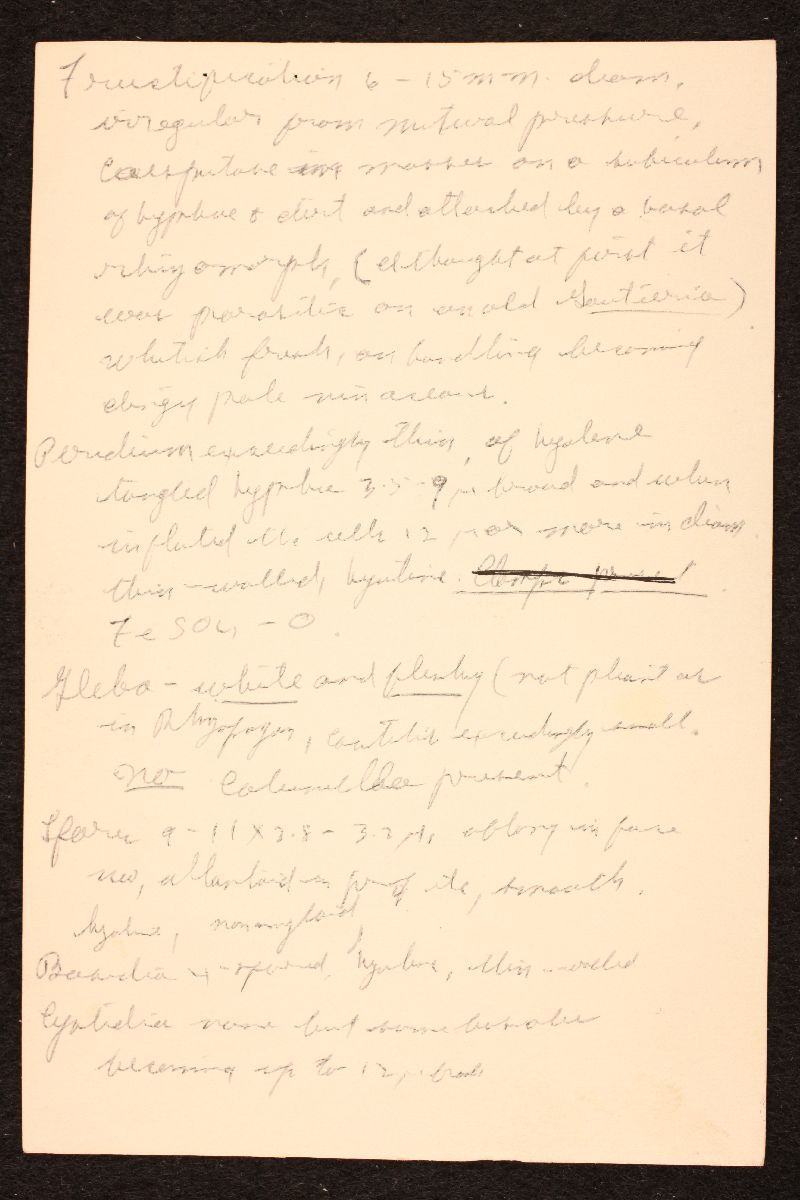 Fructification 6 - 15 mm. diam.
irregular from mutual pressure,
caespitose in masses on a subiculum
of hyphae & dirt and attached by a basal
rhizomorph, (I thought at first it
was parasitic on an old Gautieria)
whitish fresh, on handling becoming
dingy pale vinaceous.
Peridium exceedingly thin, of hyaline
tangled hyphae 3.5-9 µ broad and when
inflated the cells 12 µ or more in diam
thin-walled, hyaline. Clamps present
FeSO4 - O.
Gleba - white and fleshy (not pliant as
in Rhizopogon, cavities exceedingly small.
No columella present.
Spores 9 - 11 X 2.8 - 3.2 µ, oblong in face
view, allantoid in profile, smooth,
hyaline, nonamyloid
Basidia 4-spored, hyaline, thin-walled
Cystidia none but some basidia
becoming up to 12 µ broad